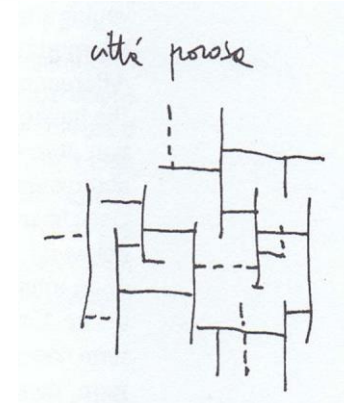 città porosa